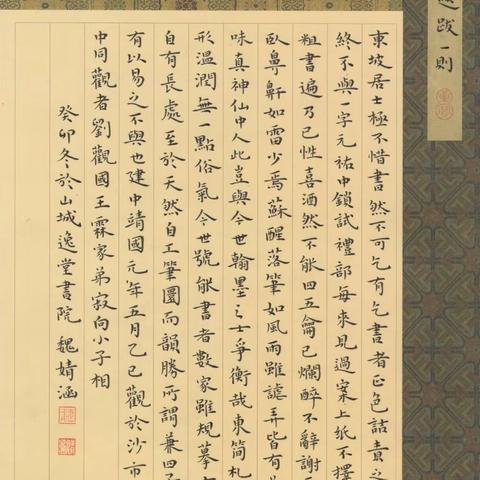 跋一則
東坡居士極不惜書然不可乞有乞書者正色詰責之
終不與一字元祐中鎖試禮部每來見過案上紙不擇
粗書遍乃已性喜酒然不能四五龠已爛醉不辭謝
臥鼻鼾如雷少焉蘇醒落筆如風雨雖謔弄皆有
味真神仙中人此豈與今世翰墨之士爭衡哉東簡札
形溫潤無一點俗氣今世號能書者數家雖規摹
自有長處至於天然自工筆圓而韻勝所謂兼四子
有以易之不與也建中靖國元年五月乙巳觀於沙市
中同觀者劉觀國王霖家弟寂向小子相
癸卯冬於山城逸堂書院 魏婧涵